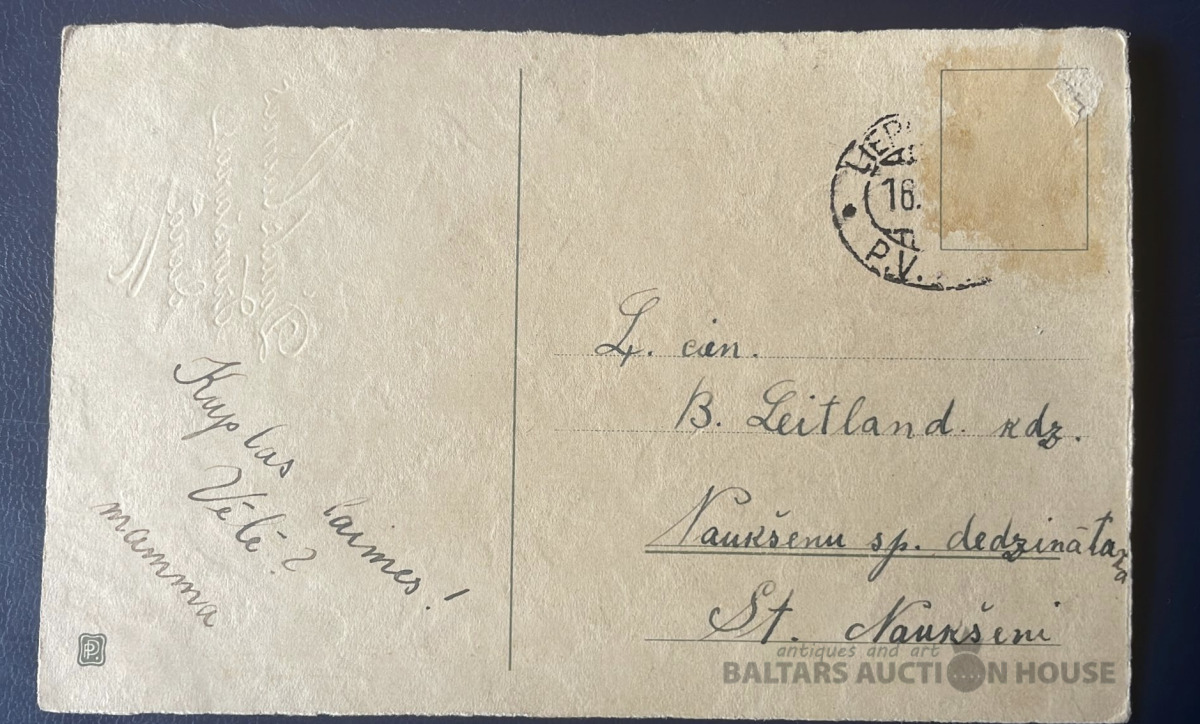 Kuplas laimes!
Vēlē?
mamma
LIEP
18.
P.V.
L. cien.
B. Leitland. kdz.
Naukšenu sp. dedzinātavā
St. Naukšeni
P.
antiques and art
BALTARS AUCTION HOUSE